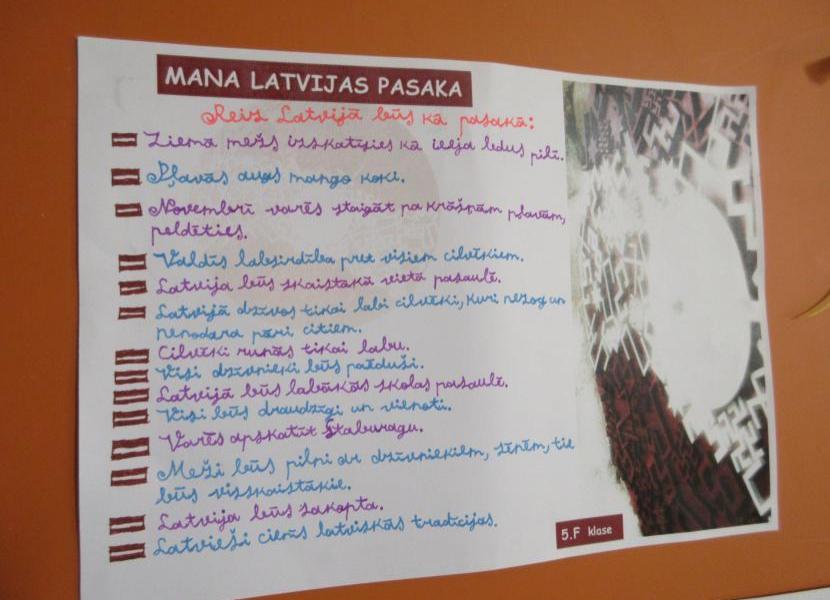 MANA LATVIJAS PASAKA
Reiz Latvijā būs kā pasakā:
Ziemā mežs izskatīsies kā ieeja ledus pilī.
Pļavās augs mango koki.
Novembrī varēs staigāt pa krāšņām pļavām,
peldēties.
Valdīs labsirdība pret visiem cilvēkiem.
Latvija būs skaistākā vietā pasaulē.
Latvijā dzīvos tikai labi cilvēki, kuri nezog un
nenodara pāri citiem.
Cilvēki runās tikai labu.
Visi dzīvnieki būs paēduši.
Latvijā būs labākās skolas pasaulē.
Visi būs draudzīgi un vienoti.
Varēs apskatīt Staburagu.
Meži būs pilni ar dzīvniekiem, sēnēm, tie
būs visskaistākie.
Latvija būs sakopta.
Latvieši cienīs latviskās tradīcijas.
5.F klase